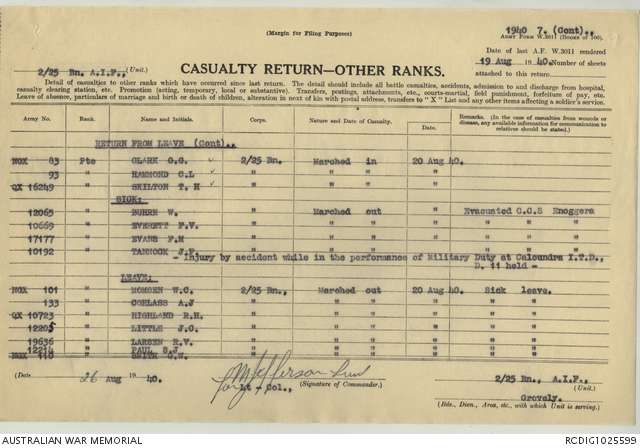 (Margin for Filing Purposes)
1940 7. (Cont).,
ARMY FORM W.3011 (BOOKS OF 100).
Date of last A.F. W.3011 rendered
19 Aug 1940. Number of sheets
attached to this return
2/25 Bn. A.I.F., (Unit.)
CASUALTY RETURN—OTHER RANKS.
Detail of casualties to other ranks which have occurred since last return. The detail should include all battle casualties, accidents, admission to and discharge from hospital,
casualty clearing station, etc. Promotion (acting, temporary, local or substantive). Transfers, postings, attachments, etc., courts-martial, field punishment, forfeiture of pay, etc.
Leave of absence, particulars of marriage and birth or death of children, alteration in next of kin with postal address, transfers to "X" List and any other items affecting a soldier's service.
Army No. Rank. Name and Initials. Corps. Nature and Date of Casualty. Date. Remarks. (In the case of casualties from wounds or disease, any available information for communication to relatives should be stated.)
RETURN FROM LEAVE (Cont).,
NGX 83 Pte CLARK G.G. 2/25 Bn. Marched in 20 Aug 40.
93 " HAMMOND C.L " " " "
QX 16249 " SKILTON T. H " " " "
SICK:
12065 " BUHRE W. " Marched out " Evacuated C.C.S Enoggera
10669 " EVERETT F.V. " " " " " " "
17177 " EVANS F.M " " " " " " "
10192 " TANNOCK J.F.
- Injury by accident while in the performance of Military Duty at Caloundra I.T.D.,
D. 11 held -
LEAVE:
NGX 101 " MOMSEN W.C. 2/25 Bn., Marched out 20 Aug 40. Sick leave.
133 " COGLASS A.J " " " " " "
QX 10723 " HIGHLAND R.H. " " " " " "
12205 " LITTLE J.C. " " " " " "
19636 " LARSEN R.V. " " " " " "
12214 " PAUL S.J " " " " " "
NGX 110 "
(Date 26 Aug 1940.
Lt - Col., (Signature of Commander.)
2/25 Bn., A.I.F.,
Grovely.
(Bde., Divn., Area, etc., with which Unit is serving.)
AUSTRALIAN WAR MEMORIAL
RCDIG1025599